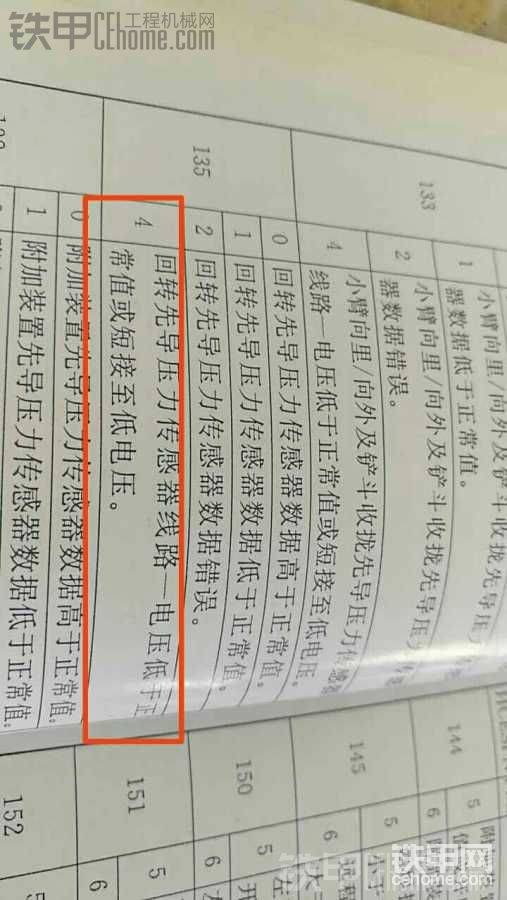 铁甲 工程机械网
CEhome.com
133
1
小臂向里/向外及铲斗收拢先导压
器数据低于正常值。
2
小臂向里/向外及铲斗收拢先导压力
器数据错误。
4
小臂向里/向外及铲斗收拢先导压力传感
线路—电压低于正常值或短接至低电压。
135
0 回转先导压力传感器数据高于正常值。
1 回转先导压力传感器数据低于正常值。
2 回转先导压力传感器数据错误。
4 回转先导压力传感器线路—电压低于正
常值或短接至低电压。
0 附加装置先导压力传感器数据高于正常值
1 附加装置先导压力传感器数据低于正常值
144
5
6
145
5
6
150
5
6
151
5
6
152
5
铁甲网
cehome.com